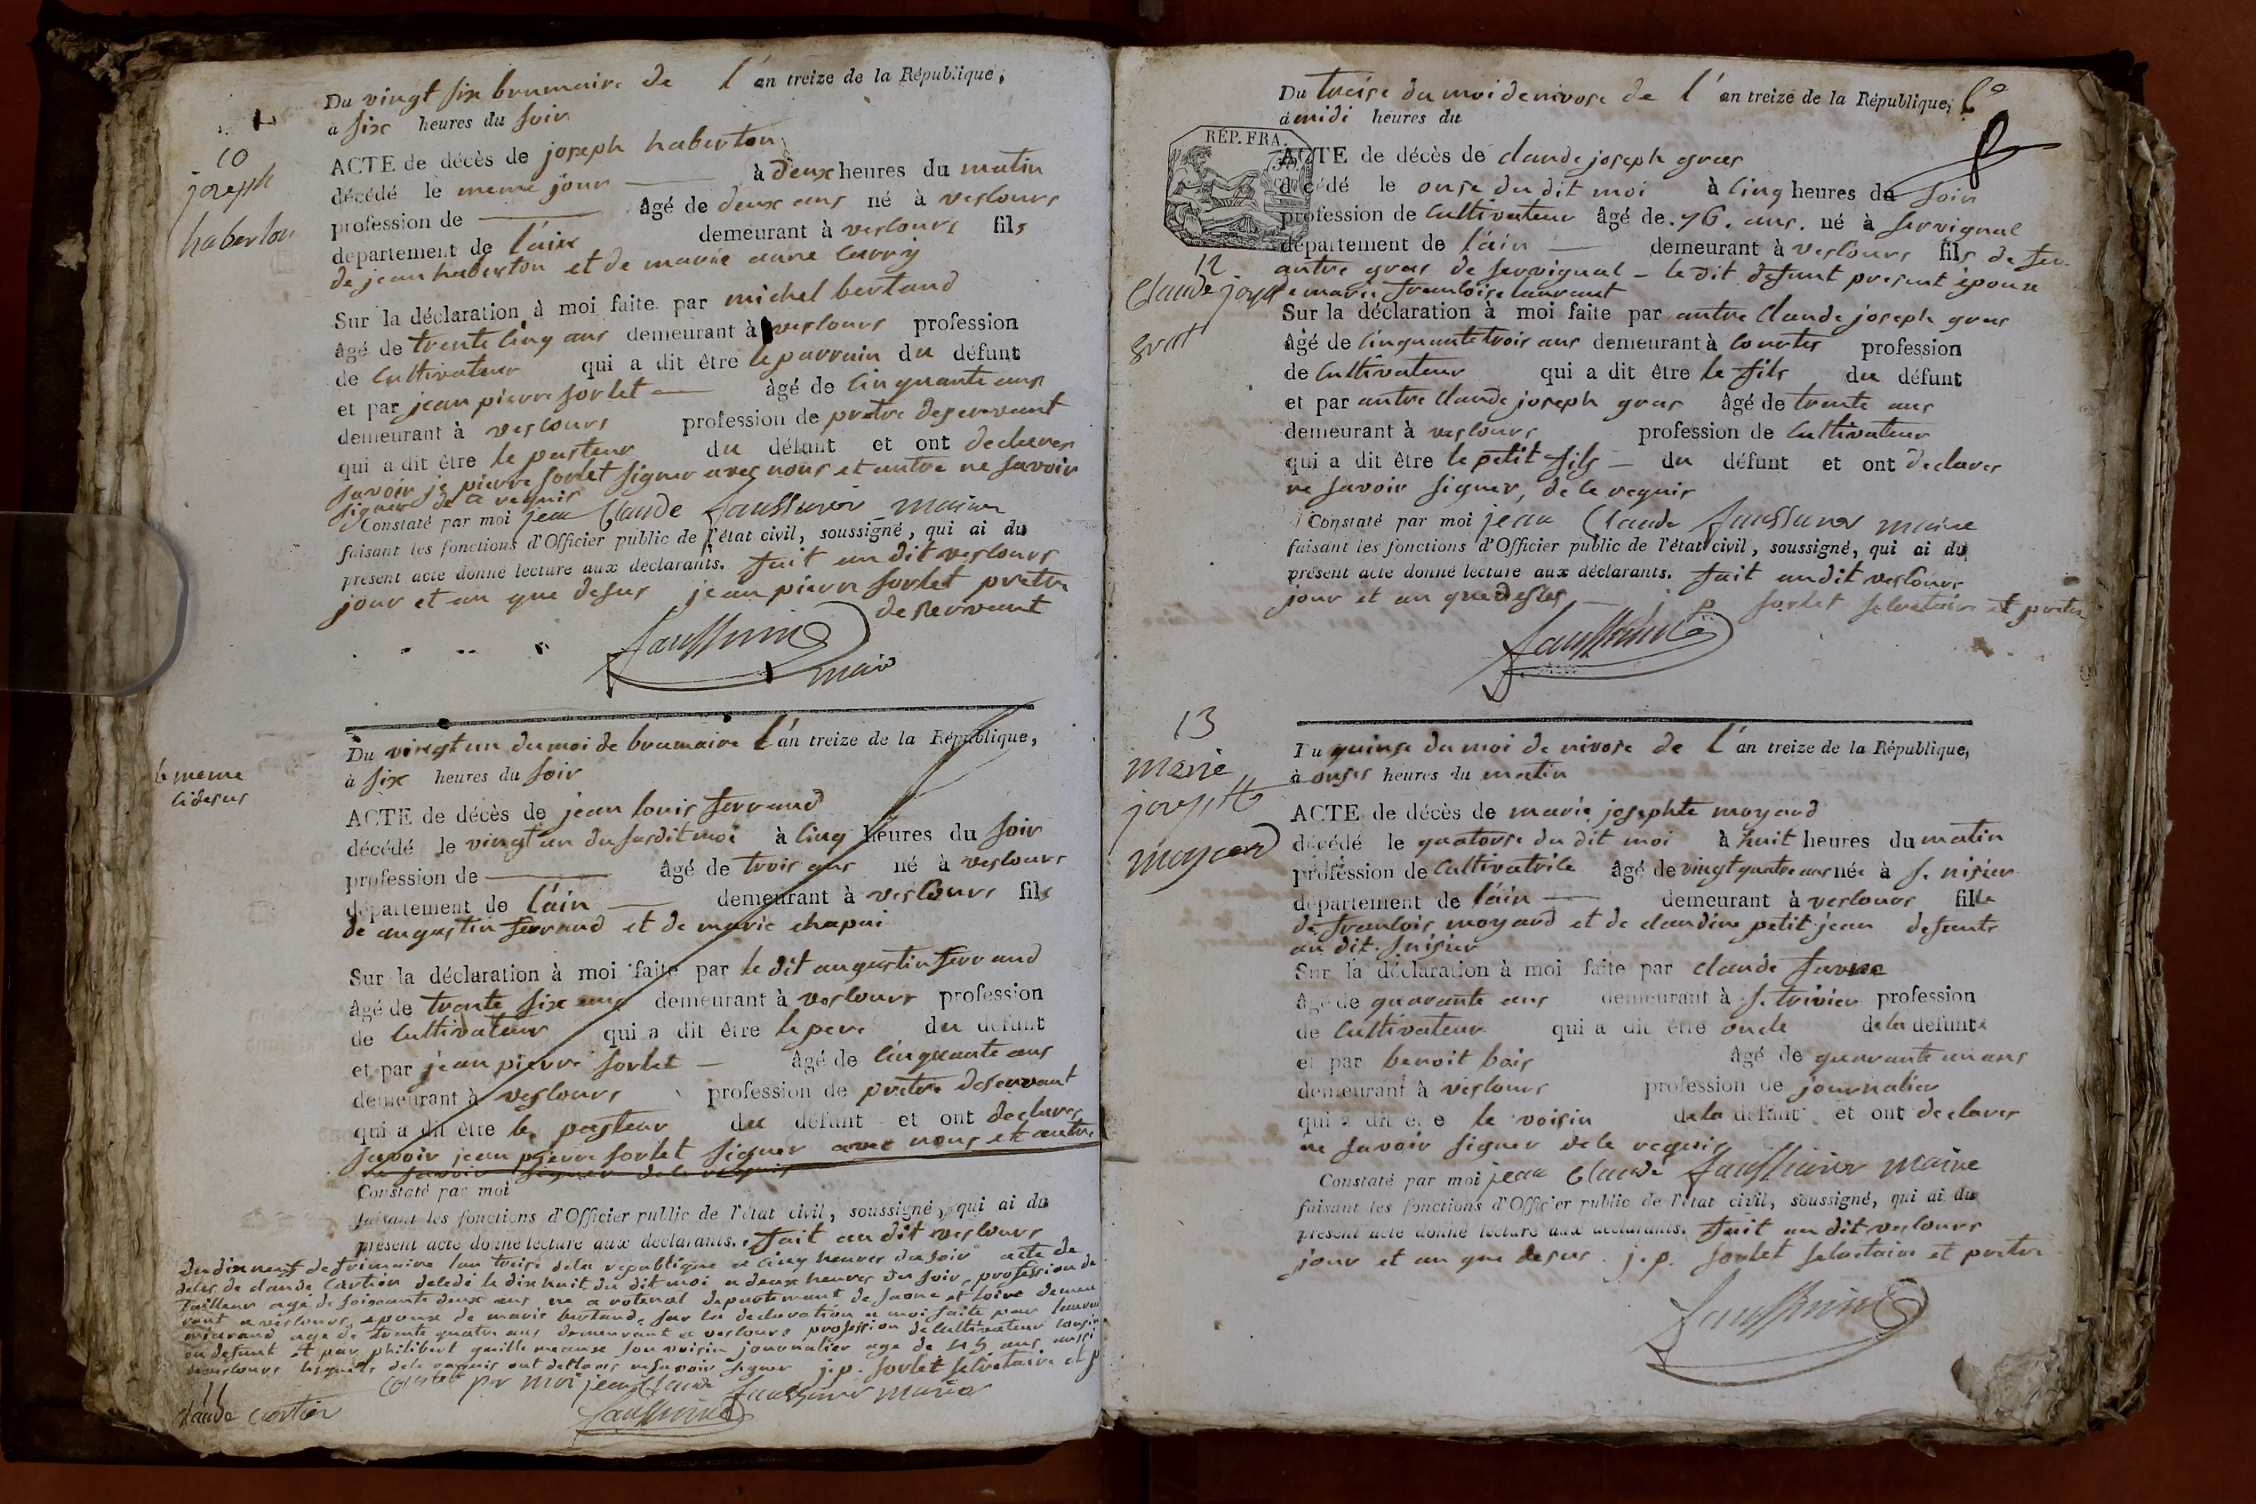 10
joseph
haberton
Du vingt six brumaire de l'an treize de la République,
à six heures du soir
ACTE de décès de joseph haberton
décédé le meme jour à deux heures du matin
profession de âgé de deux ans né à vescours
département de l'ain demeurant à vescours fils
de jean haberton et de marie anne
Sur la déclaration à moi faite par michel bertand
âgé de trente cinq ans demeurant à vescours profession
de cultivateur qui a dit être le parrain du défunt
et par jean pierre sorlet âgé de cinquante ans
demeurant à vescours profession de pretre deservant
qui a dit être le pasteur du défunt et ont declarer
savoir je pierre sorlet signer avec nous et autre ne savoir
signer de ce requis
Constaté par moi jean Claude maire
faisant les fonctions d'Officier public de l'état civil, soussigné, qui ai du
présent acte donné lecture aux déclarants. fait au dit vescours
jour et an que desus jean pierre sorlet pretre
deservant
maire
le meme
cidesus
Du vingt un du moi de brumaire l'an treize de la République,
à six heures du soir
ACTE de décès de jean louis ferrand
décédé le vingt un du susdit moi à cinq heures du soir
profession de âgé de trois ans né à vescours
département de l'ain demeurant à vescours fils
de augustin ferrand et de marie chapui
Sur la déclaration à moi faite par le dit augustin ferrand
âgé de trente six ans demeurant à vescours profession
de cultivateur qui a dit être le pere du défunt
et par jean pierre sorlet âgé de cinquante ans
demeurant à vescours profession de pretre deservant
qui a dit être le pasteur du défunt et ont declarer
savoir jean pierre sorlet signer avec nous et autre
ne savoir signer de ce requis
Constaté par moi
faisant les fonctions d'Officier public de l'état civil, soussigné, qui ai du
présent acte donné lecture aux déclarants. fait au dit vescours
du dix neuf de frimaire l'an treise de la republique a cinq heures du soir acte de
deces de claude cartier decedé le dix huit du dit moi a deux heures du soir, profession de
tailleur agé de soixante deux ans né a departement de saone et loire demeu
rant a vescours, epoux de marie bertand, sur la declaration a moi faite par
agé de trente quatre ans demeurant a vescours profession de cultivateur cousin
du defunt et par philibert son voisin journalier age de 45 ans aussi
lesquels de ce requis ont declarer ne savoir signer j. p. sorlet secretaire et p
Constaté par moi jean Claude maire
11
claude cartier
Du treise du moi de nivose de l'an treize de la République,
à midi heures du
RÉP. FRA.
12
Claude joseph
gras
ACTE de décès de claude joseph gras
décédé le onse du dit moi à cinq heures du soir
profession de cultivateur âgé de 76 ans. né à servignat
département de l'ain demeurant à vescours fils de feu
autre gras de servignat - le dit defunt present epoux
de marie francoise laurant
Sur la déclaration à moi faite par autre claude joseph gras
âgé de cinquante trois ans demeurant à courtes profession
de cultivateur qui a dit être le fils du défunt
et par autre claude joseph gras âgé de trente ans
demeurant à vescours profession de cultivateur
qui a dit être le petit fils du défunt et ont declarer
ne savoir signer, de ce requis
Constaté par moi jean Claude maire
faisant les fonctions d'Officier public de l'état civil, soussigné, qui ai du
présent acte donné lecture aux déclarants. fait au dit vescours
jour et an que desus j. p. sorlet secretaire et pretre
13
marie
josephte
moyard
Du quinse du moi de nivose de l'an treize de la République,
à onse heures du matin
ACTE de décès de marie josephte moyard
décédé le quatorse du dit moi à huit heures du matin
profession de cultivatrice âgé de vingt quatre ans née à s. nisier
département de l'ain demeurant à vescours fille
de francois moyard et de claudine petit jean defunts
au dit s. nisier
Sur la déclaration à moi faite par claude
âgé de quarante ans demeurant à s. trivier profession
de cultivateur qui a dit être oncle de la défunte
et par benoit bois âgé de quarante un ans
demeurant à vescours profession de journalier
qui a dit être le voisin de la défunt et ont declarer
ne savoir signer de ce requis
Constaté par moi jean Claude maire
faisant les fonctions d'Officier public de l'état civil, soussigné, qui ai du
présent acte donné lecture aux déclarants. fait au dit vescours
jour et an que desus j. p. sorlet secretaire et pretre